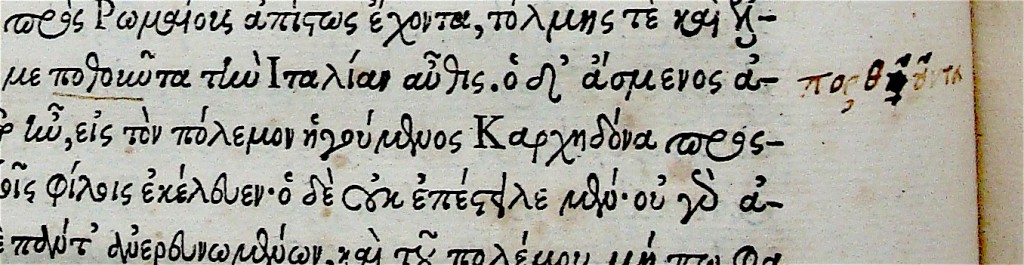 πρὸς Ῥωμαίοις ἀπίστως ἔχοντα, τόλμης τὲ καὶ ἤ-
με ποθοκῦτα τὴν Ἰταλίαν αὖθις. ὁ δ' ἄσμενος ἀ-
ἦν, εἰς τὸν πόλεμον ἡγούμενος Καρχηδόνα προς-
τοῖς φίλοις ἐκέλευεν· ὁ δὲ οὐκ ἐπέστειλε μέν· οὐ γὰρ ἀ-
πολύτ' ἀνερευνωμένων, καὶ τοῦ πολέμου μή πω φα